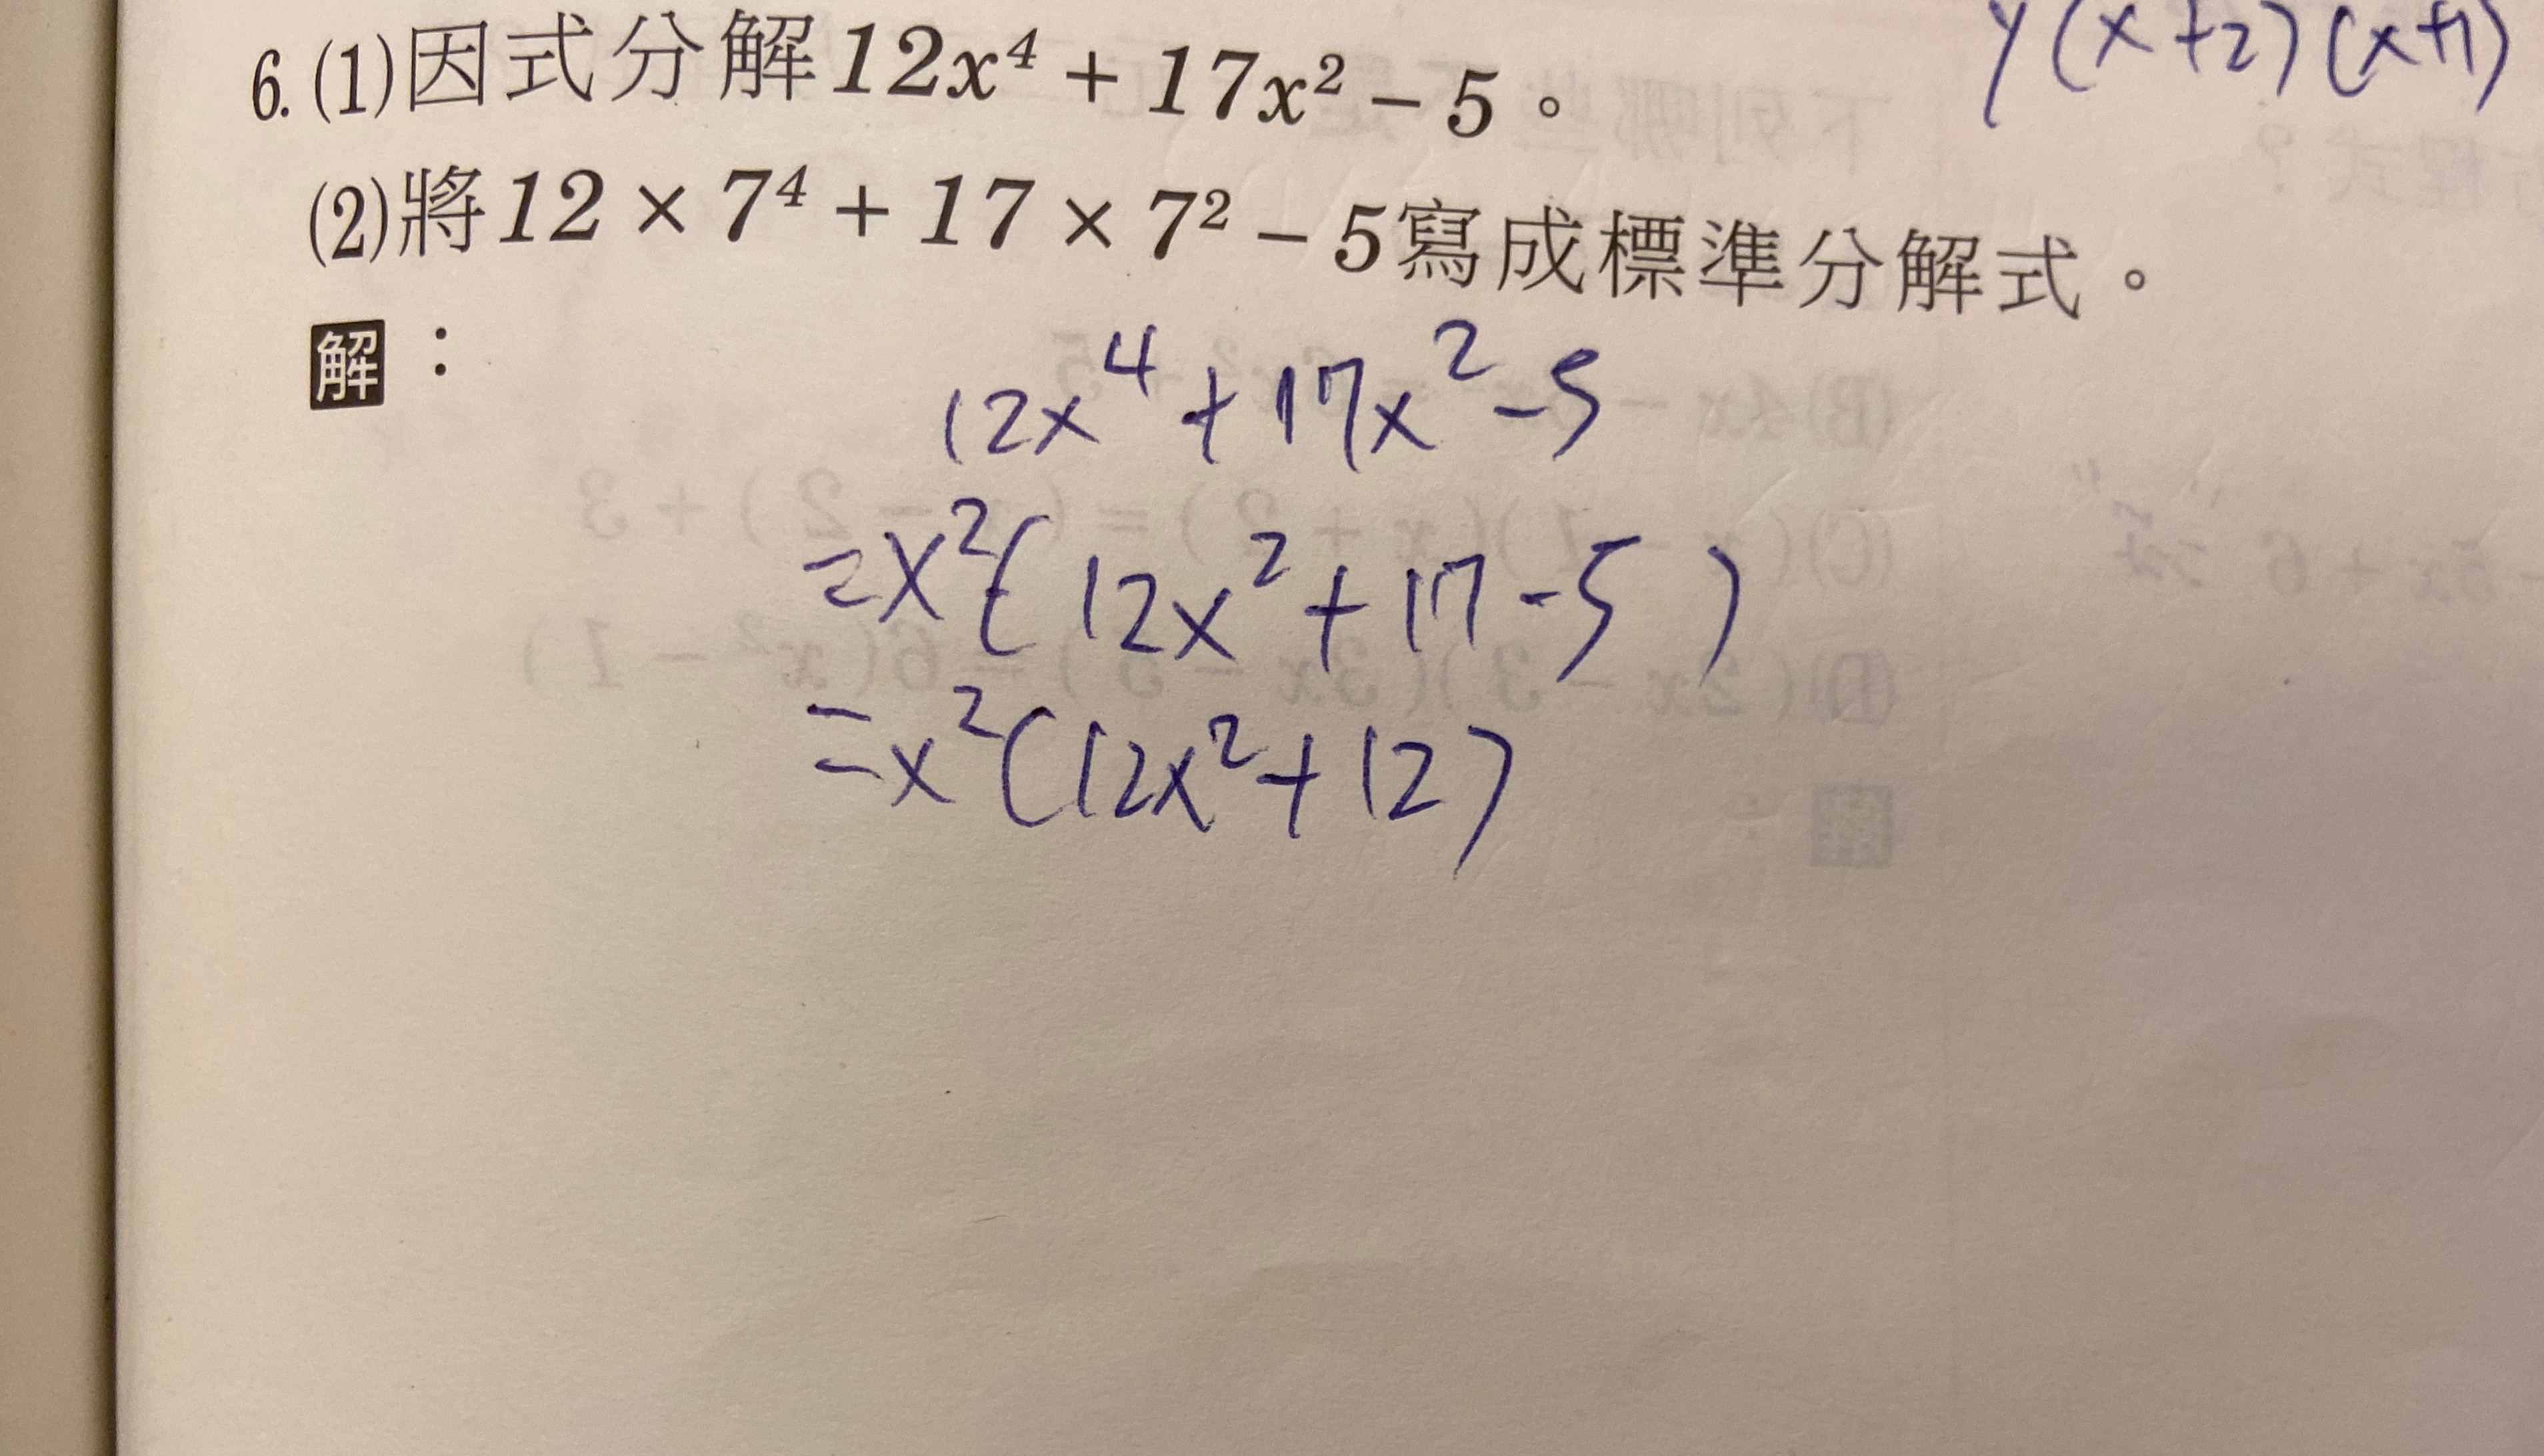 y(x+2)(x+1)
6.(1)因式分解12x⁴ + 17x² − 5。
(2)將12 × 7⁴ + 17 × 7² − 5寫成標準分解式。
解：
12x⁴+17x²-5
=x²(12x²+17-5)
=x²(12x²+12)